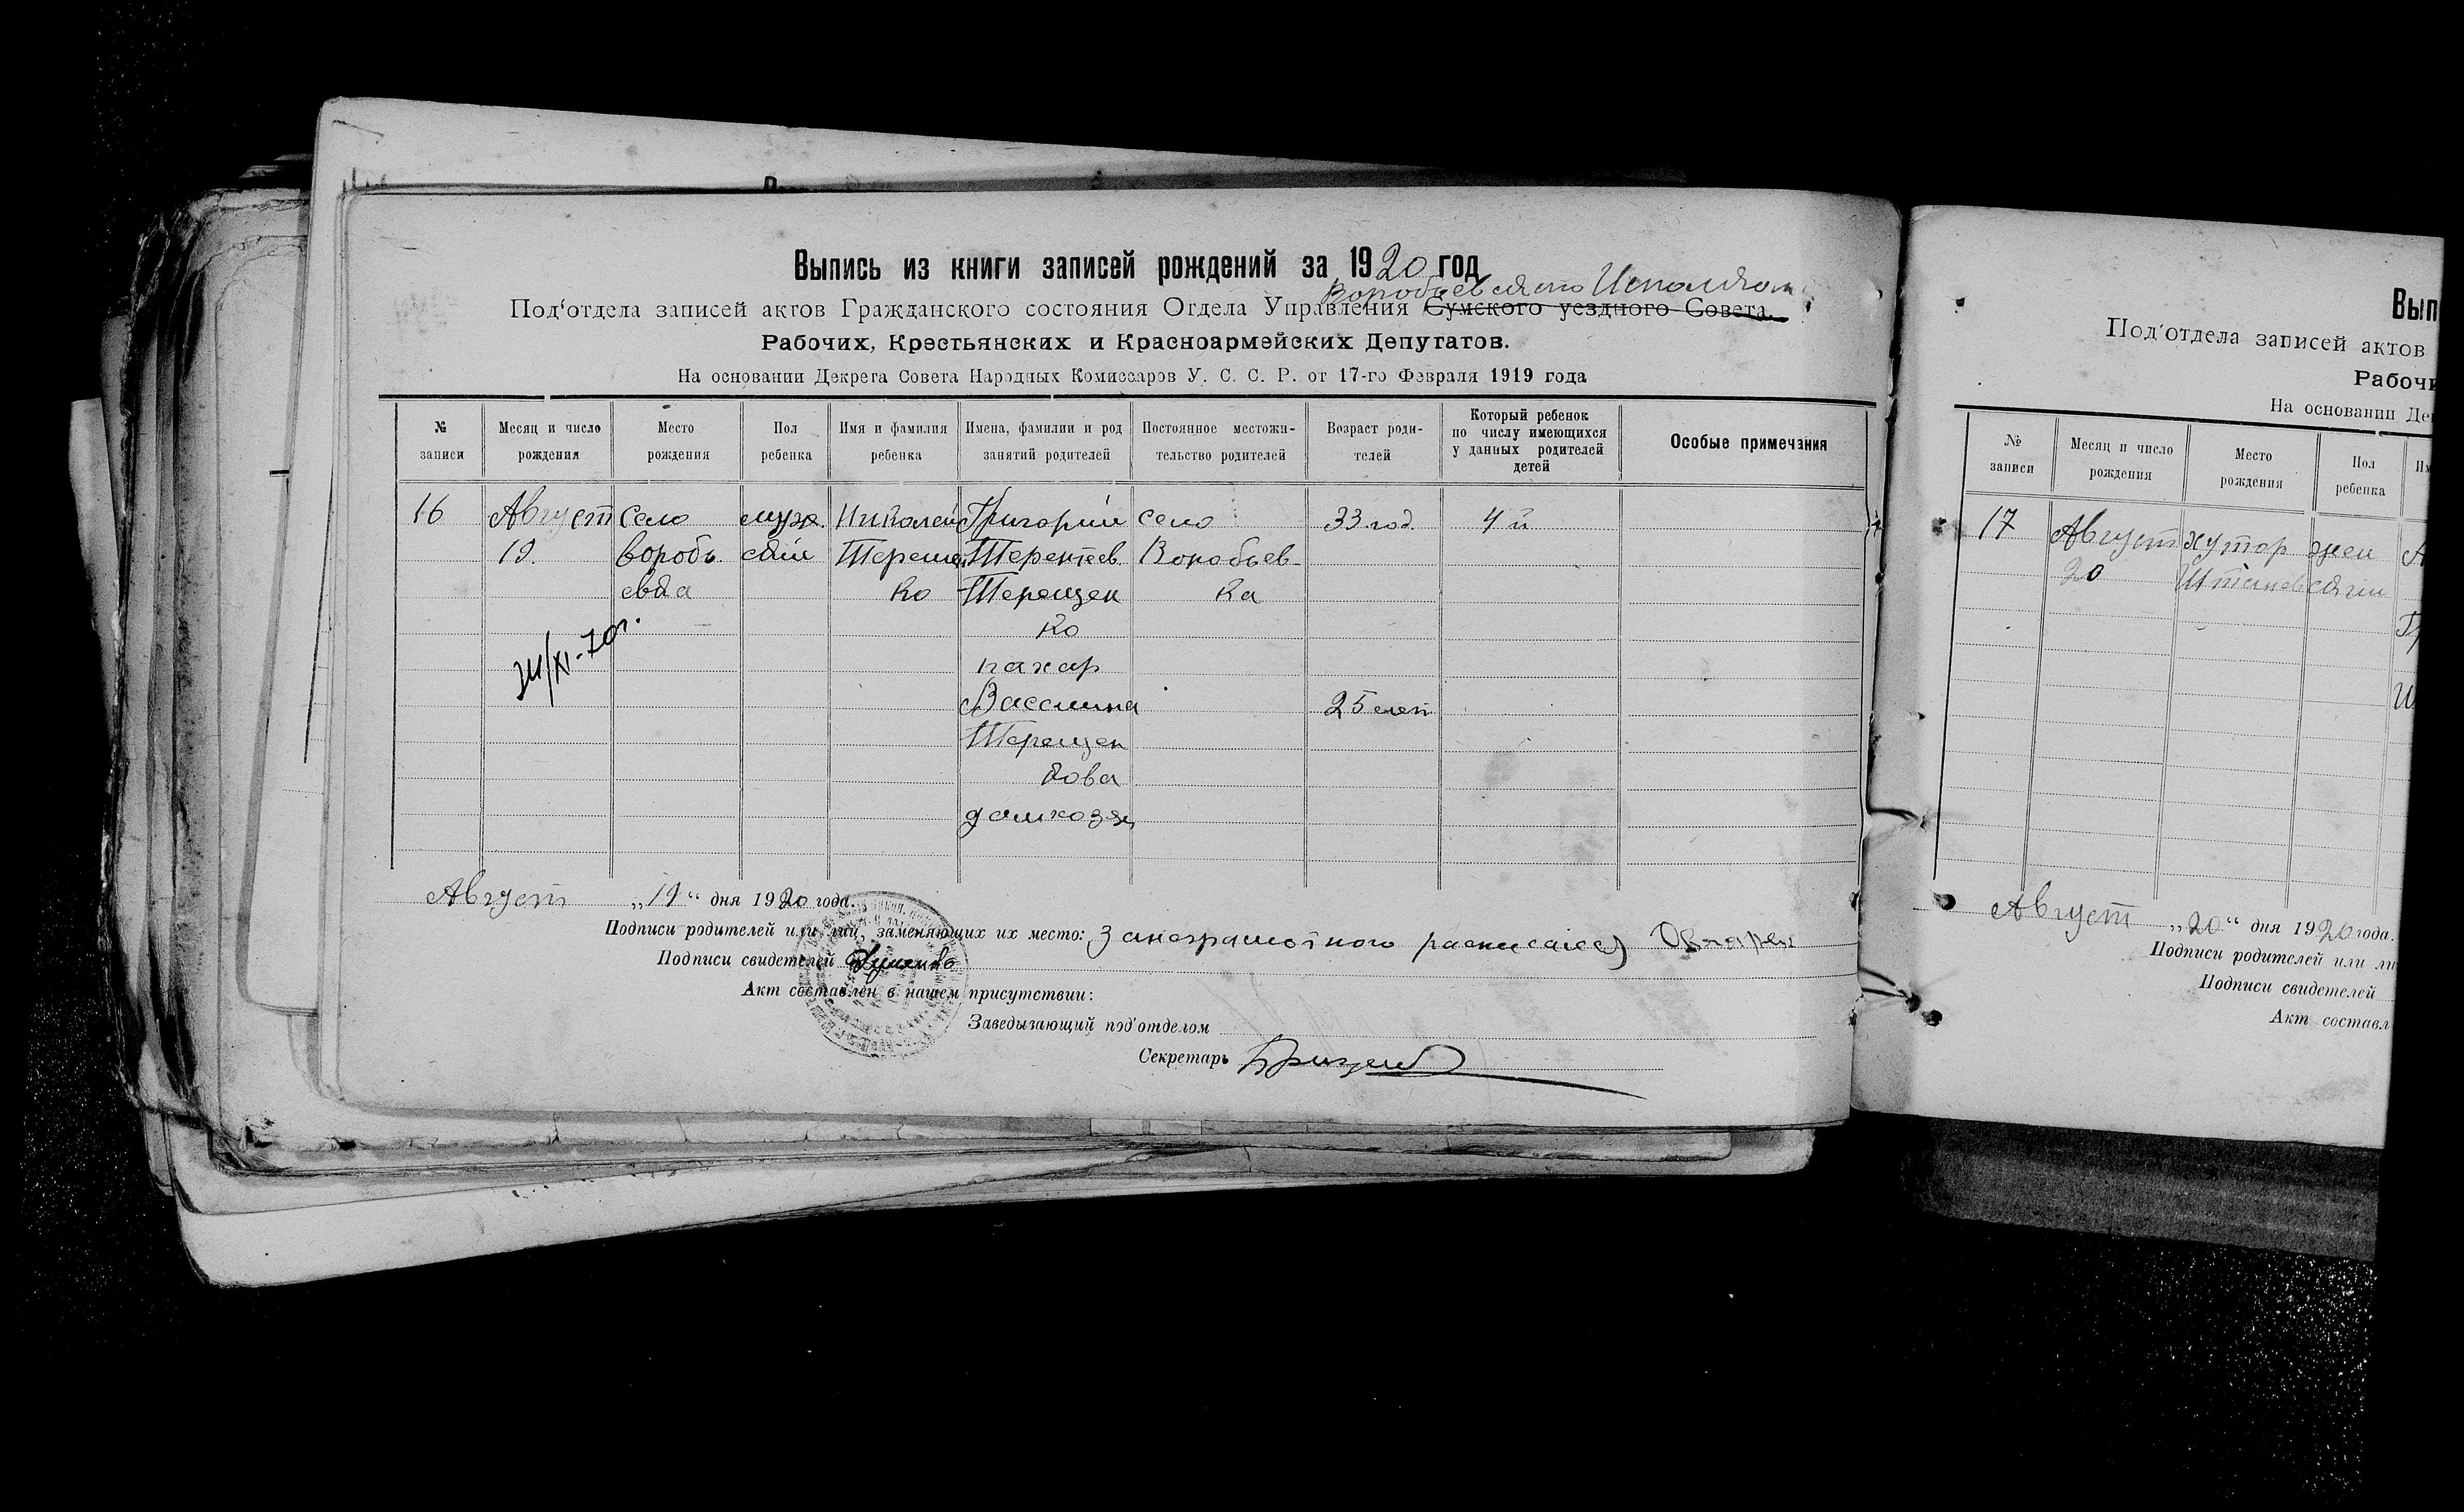 Выпись из книги записей рождений за 1920 год
Воробьевского Исполкома
Под'отдела записей актов Гражданского состояния Отдела Управления Сумского уездного Совета.
Рабочих, Крестьянских и Красноармейских Депутатов.
На основании Декрета Совета Народных Комиссаров У. С. С. Р. от 17-го Февраля 1919 года
№ записи
Месяц и число рождения
Место рождения
Пол ребенка
Имя и фамилия ребенка
Имена, фамилии и род занятий родителей
Постоянное местожительство родителей
Возраст родителей
Который ребенок по числу имеющихся у данных родителей детей
Особые примечания
16 Август Село муж. Николай Григорий село 33 год. 4 й
19. воробь ской Терещен Терентьев Воробьев
евка ко Терещен ка
ко
пахар
Василина 25 лет
Терещен
кова
домхозя
XI-70г.
Август „19“ дня 1920 года.
Подписи родителей или лиц, заменяющих их место: За неграмотного расписался
Подписи свидетелей
Акт составлен в нашем присутствии:
Заведывающий под'отделом
Секретарь
Вып
Под'отдела записей актов
Рабочи
На основании Де
№ записи
Месяц и число рождения
Место рождения
Пол ребенка
17 Август хутор жен
20
Август „20“ дня 1920 года.
Подписи родителей или ли
Подписи свидетелей
Акт составл